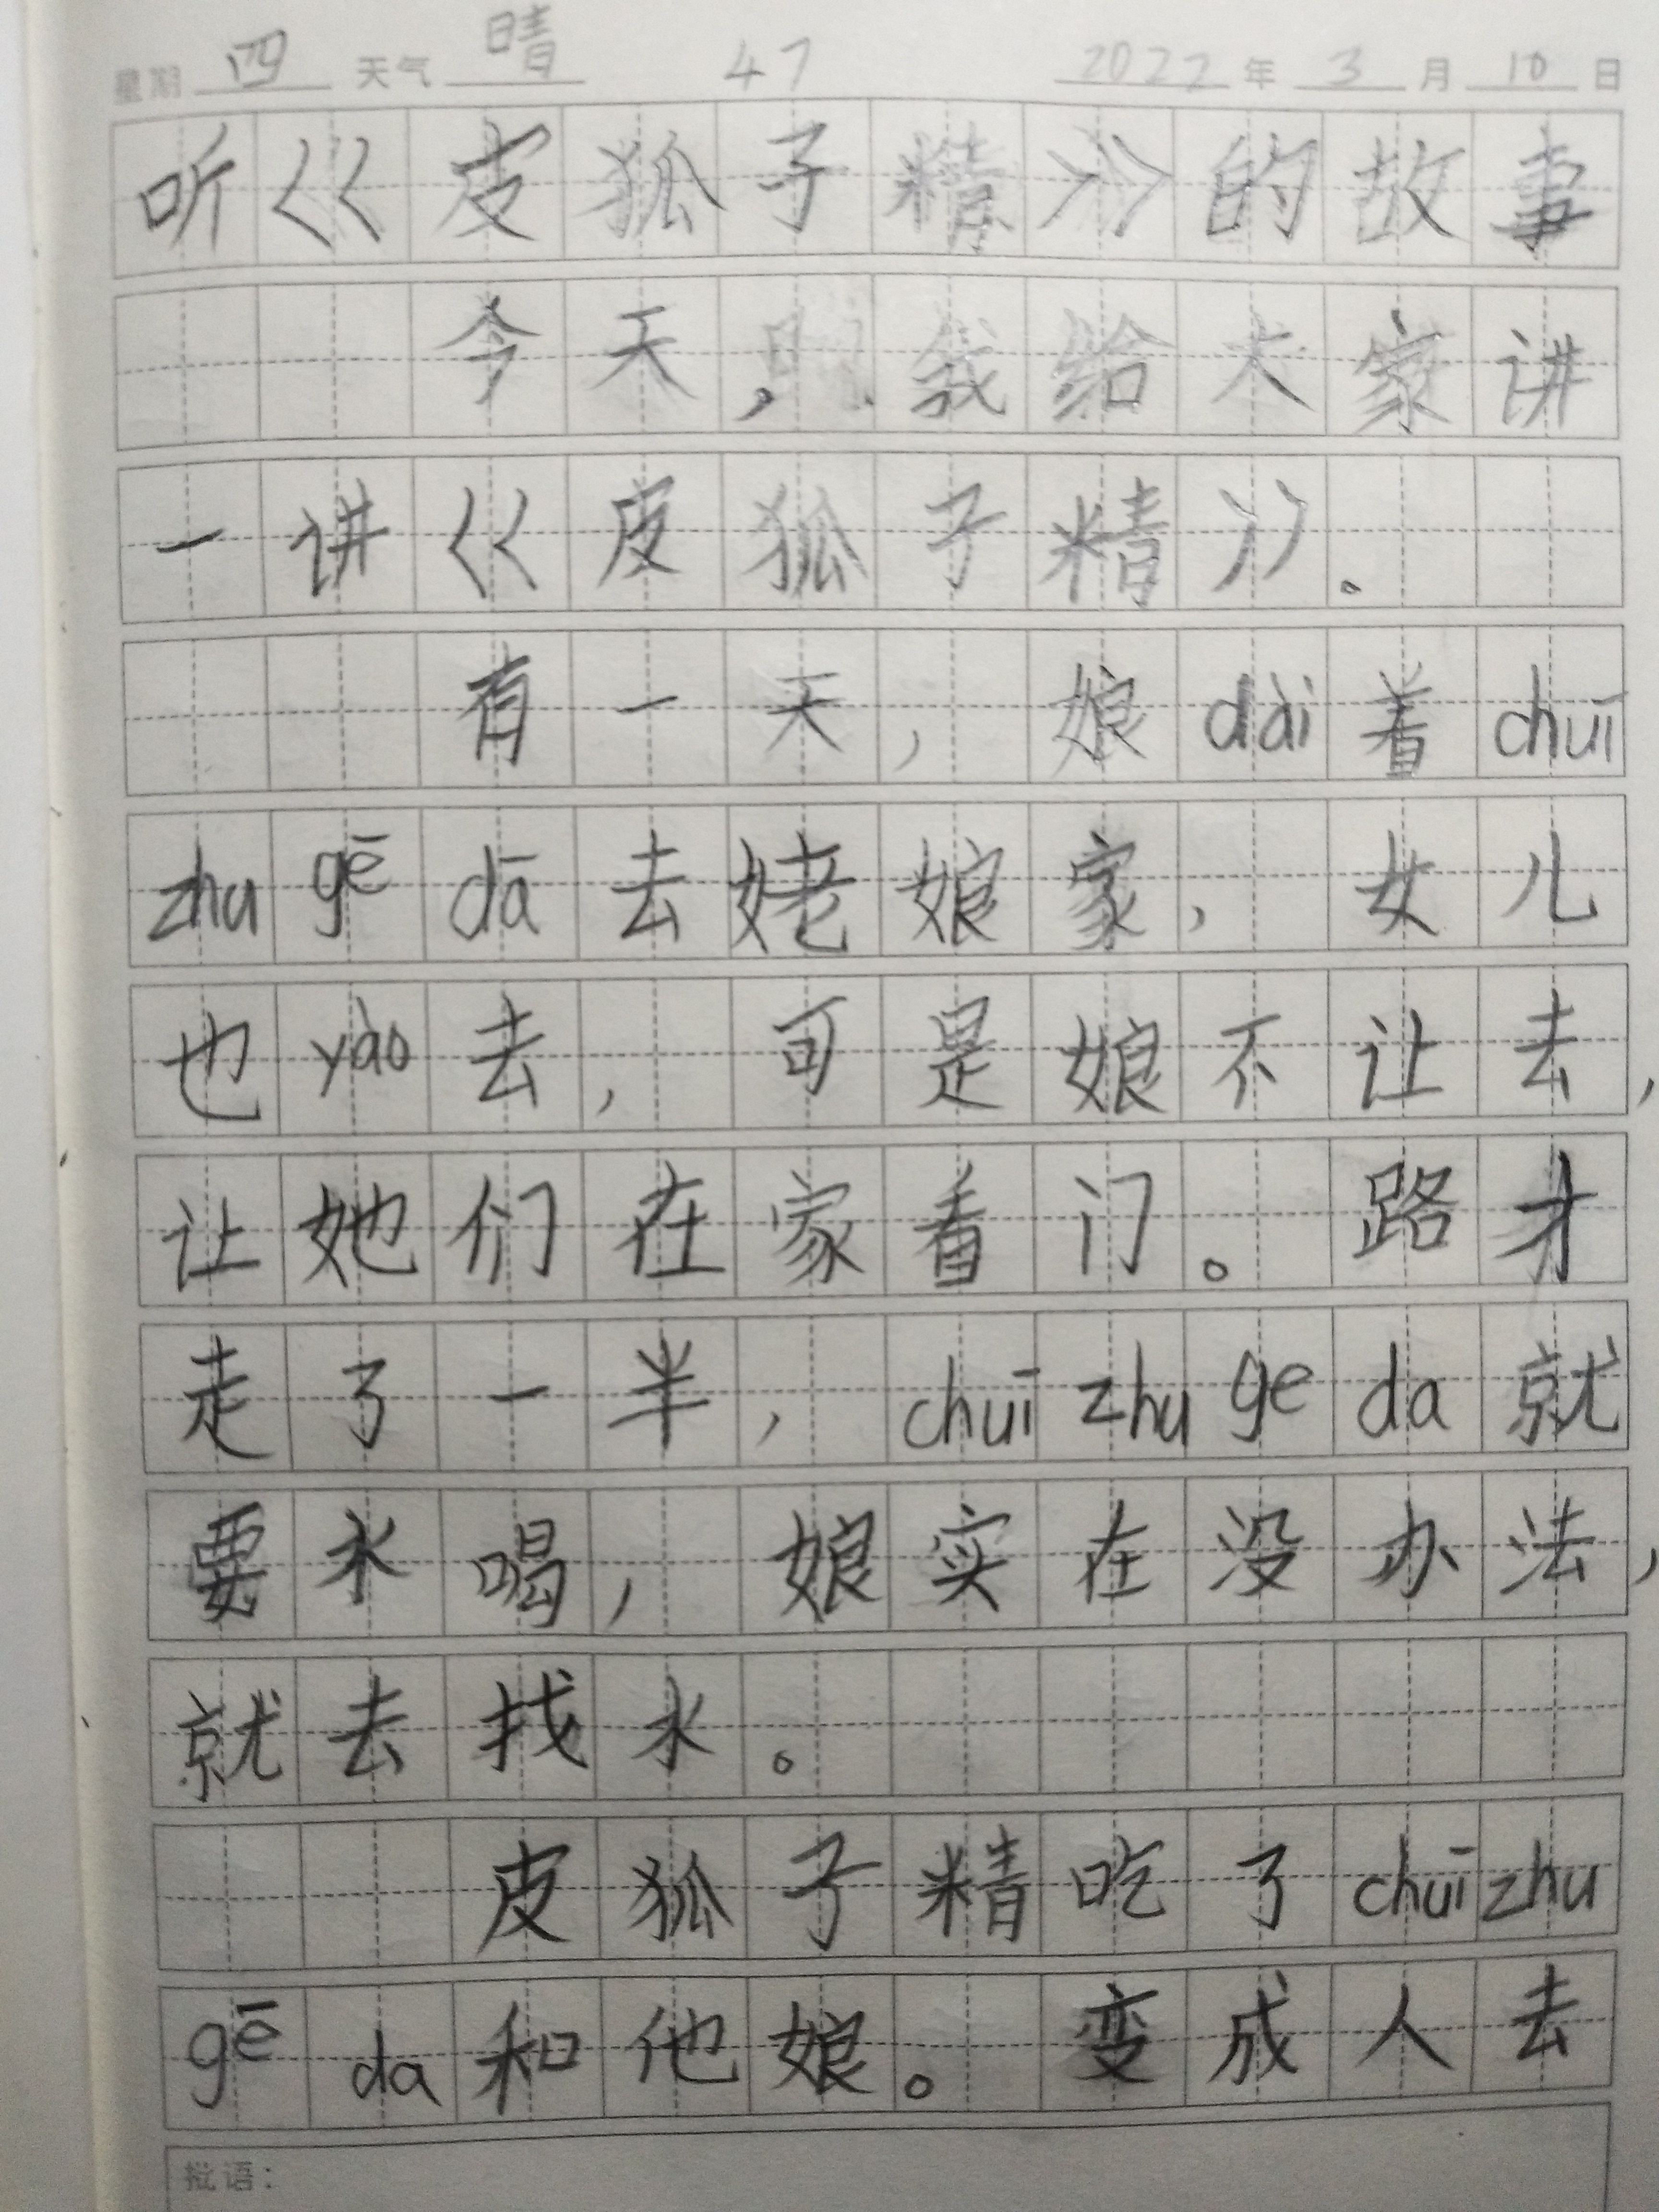 星期 四 天气 晴 47 2022 年 3 月 10 日
听《皮狐子精》的故事
今天，我给大家讲
一讲《皮狐子精》。
有一天，娘dài着chuī
zhu gē dā去姥娘家，女儿
也yào去，可是娘不让去，
让她们在家看门。路才
走了一半，chuī zhu ge da就
要水喝，娘实在没办法，
就去找水。
皮狐子精吃了chuī zhu
gē da和他娘。变成人去
批语：